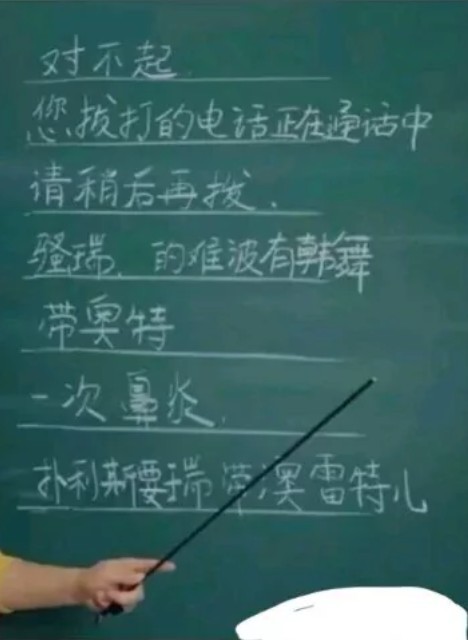 对不起.
您拨打的电话正在通话中
请稍后再拨.
骚瑞.的难波有韩舞
带奥特
一次鼻炎.
扑利斯要瑞带澳雷特儿